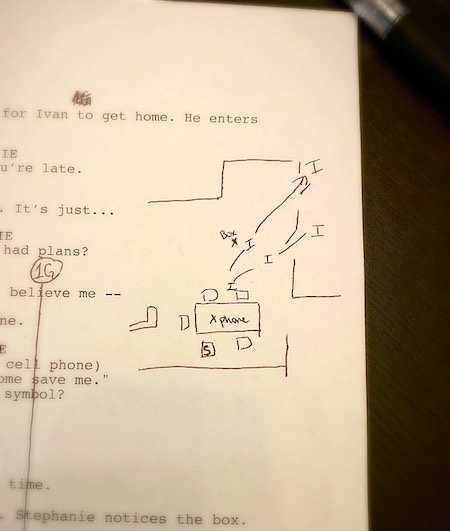 for Ivan to get home. He enters
IE
u're late.
. It's just...
IE
had plans?
1G
believe me --
ne.
E
cell phone)
ome save me."
symbol?
time.
. Stephanie notices the box.
I
I
Box
x I
I
I
X phone
S